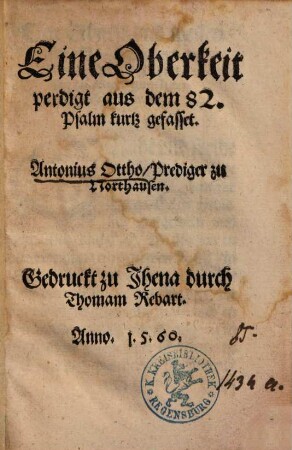 Eine Oberkeit
perdigt aus dem 82.
Psalm kurtz gefasset.
Antonius Ottho/Prediger zu
Northausen.
Gedruckt zu Jhena durch
Thomam Rebart.
Anno. 1.5.60.
K. KREISBIBLIOTHEK
REGENSBURG
1434 a.